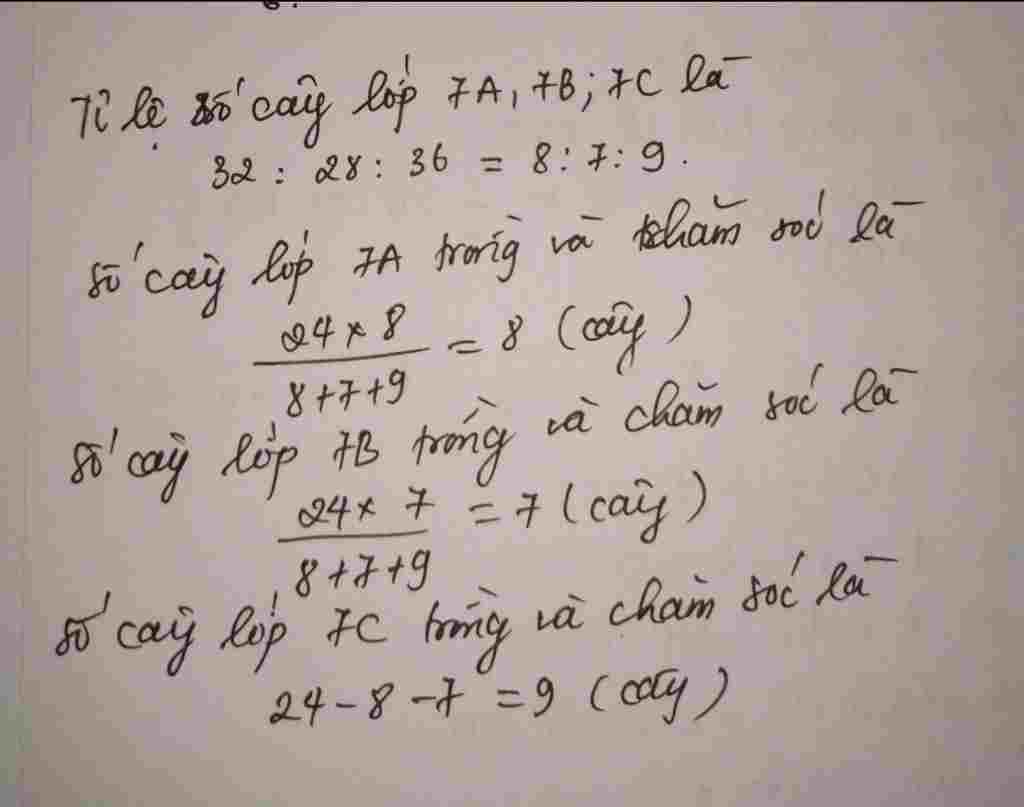 Tỉ lệ số cây lớp 7A, 7B; 7C là
32 : 28 : 36 = 8 : 7 : 9.
số cây lớp 7A trồng và chăm sóc là
24 × 8 / 8+7+9 = 8 (cây)
số cây lớp 7B trồng và chăm sóc là
24 × 7 / 8+7+9 = 7 (cây)
số cây lớp 7C trồng và chăm sóc là
24 - 8 - 7 = 9 (cây)